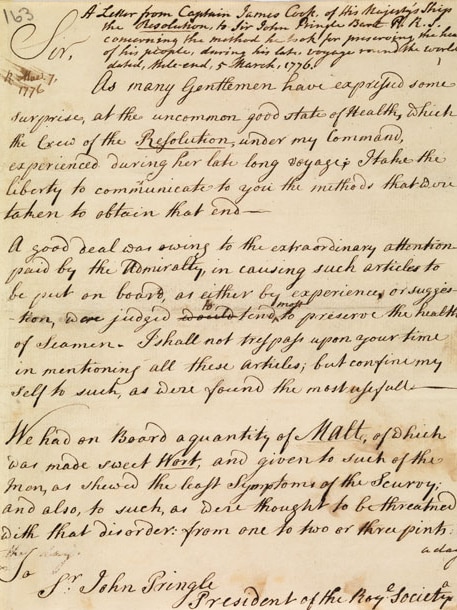 163
A Letter from Captain James Cook, of His Majesty's Ship
the Resolution, to Sir John Pringle Bart. P. R. S.
concerning the method he took for preserving the hea
of his people, during his late voyage round the world
dated, Mile-end, 5 March, 1776.
Sir,
R. Mar. 7.
1776
As many Gentlemen have expressed some
surprise, at the uncommon good state of Health, which
the Crew of the Resolution, under my Command,
experienced during her late long voyage; I take the
liberty to communicate to you the methods that were
taken to obtain that end—
A good deal was owing to the extraordinary attention
paid by the Admiralty, in causing such articles to
be put on board, as either by experience, or sugges-
tion, were judged would to tend most to preserve the health
of Seamen. I shall not trespass upon your time
in mentioning all these Articles; but confine my
self to such, as were found the most usefull—
We had on Board a quantity of Malt, of which
was made sweet Wort, and given to such of the
Men, as shewed the least Symptoms of the Scurvy;
and also, to such, as were thought to be threatned
with that disorder: from one to two or three pints
a day
To
Sr. John Pringle
President of the Royl. Society